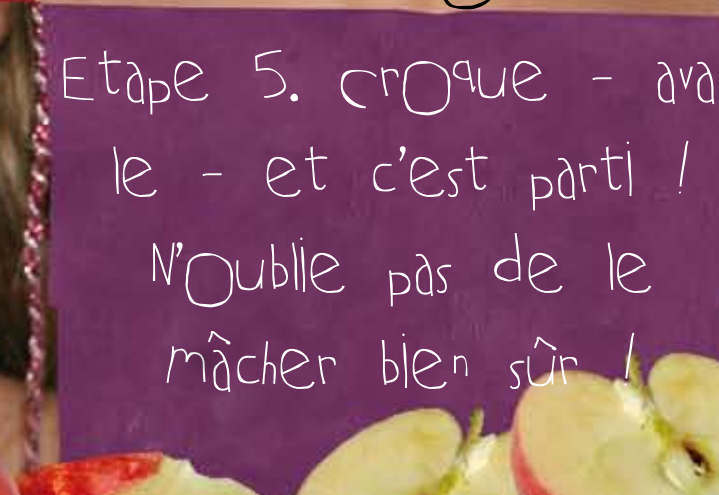 Etape 5. croque - ava
le - et c'est parti !
N'Oublie pas de le
mâcher bien sûr !